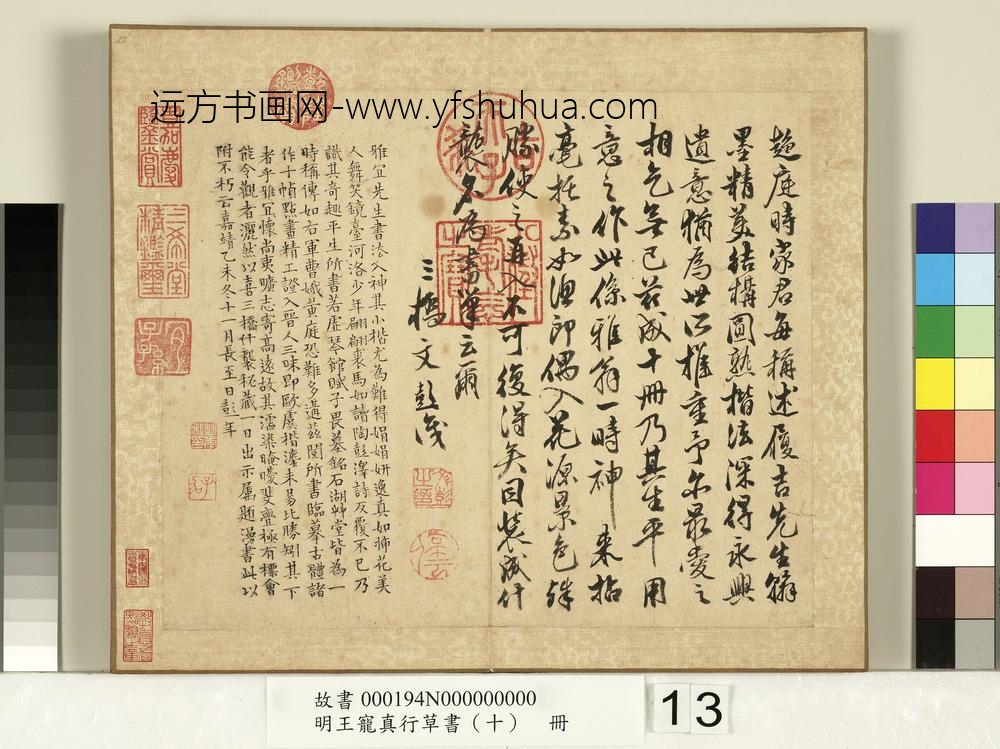 远方书画网-www.yfshuhua.com
趋庭時家君每稱述履吉先生翰
墨精美結構圓熟楷法深得永興
遺意猶為世所推重予尔最愛之
相乞無已前成十冊乃其生平用
意之作此係雅翁一時神來拈
毫抒素如漁郎偶入花源景色殊
勝使之再入不可復得矣因裝成什
襲久為書筆云爾
三橋文彭識
雅宜先生書法入神其小楷尤為難得娟娟妍逸真如插花美
人舞笑鏡臺河洛少年翩翩裘馬如讀陶彭澤詩反覆不已乃
識其奇趣平生所書若虛琴館賦子畏墓銘石湖艸堂皆為一
時稱傳如右軍曹娥黃庭恐難多遘茲閱所書臨摹古體諸
作十幀點畫精工證入晉人三昧即歐虞楷瀍未易比勝矧其下
者乎雅宜懷尚夷曠志寄高遠故其濡染曖曃斐亹極有標會
能令觀者灑然以喜三橋什製秘藏一日出示屬題漫書此以
附不朽云嘉靖乙未冬十一月長至日彭年
三希堂精鑑璽
宜子孫
文彭之印
故書 000194N000000000
明王寵真行草書（十） 冊
13